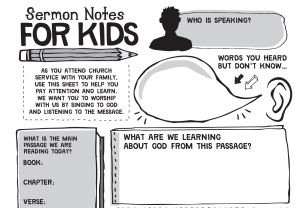 Sermon Notes
FOR KIDS
AS YOU ATTEND CHURCH
SERVICE WITH YOUR FAMILY,
USE THIS SHEET TO HELP YOU
PAY ATTENTION AND LEARN.
WE WANT YOU TO WORSHIP
WITH US BY SINGING TO GOD
AND LISTENING TO THE MESSAGE.
WHO IS SPEAKING?
WORDS YOU HEARD
BUT DON'T KNOW...
WHAT IS THE MAIN
PASSAGE WE ARE
READING TODAY?
BOOK:
CHAPTER:
VERSE:
WHAT ARE WE LEARNING
ABOUT GOD FROM THIS PASSAGE?